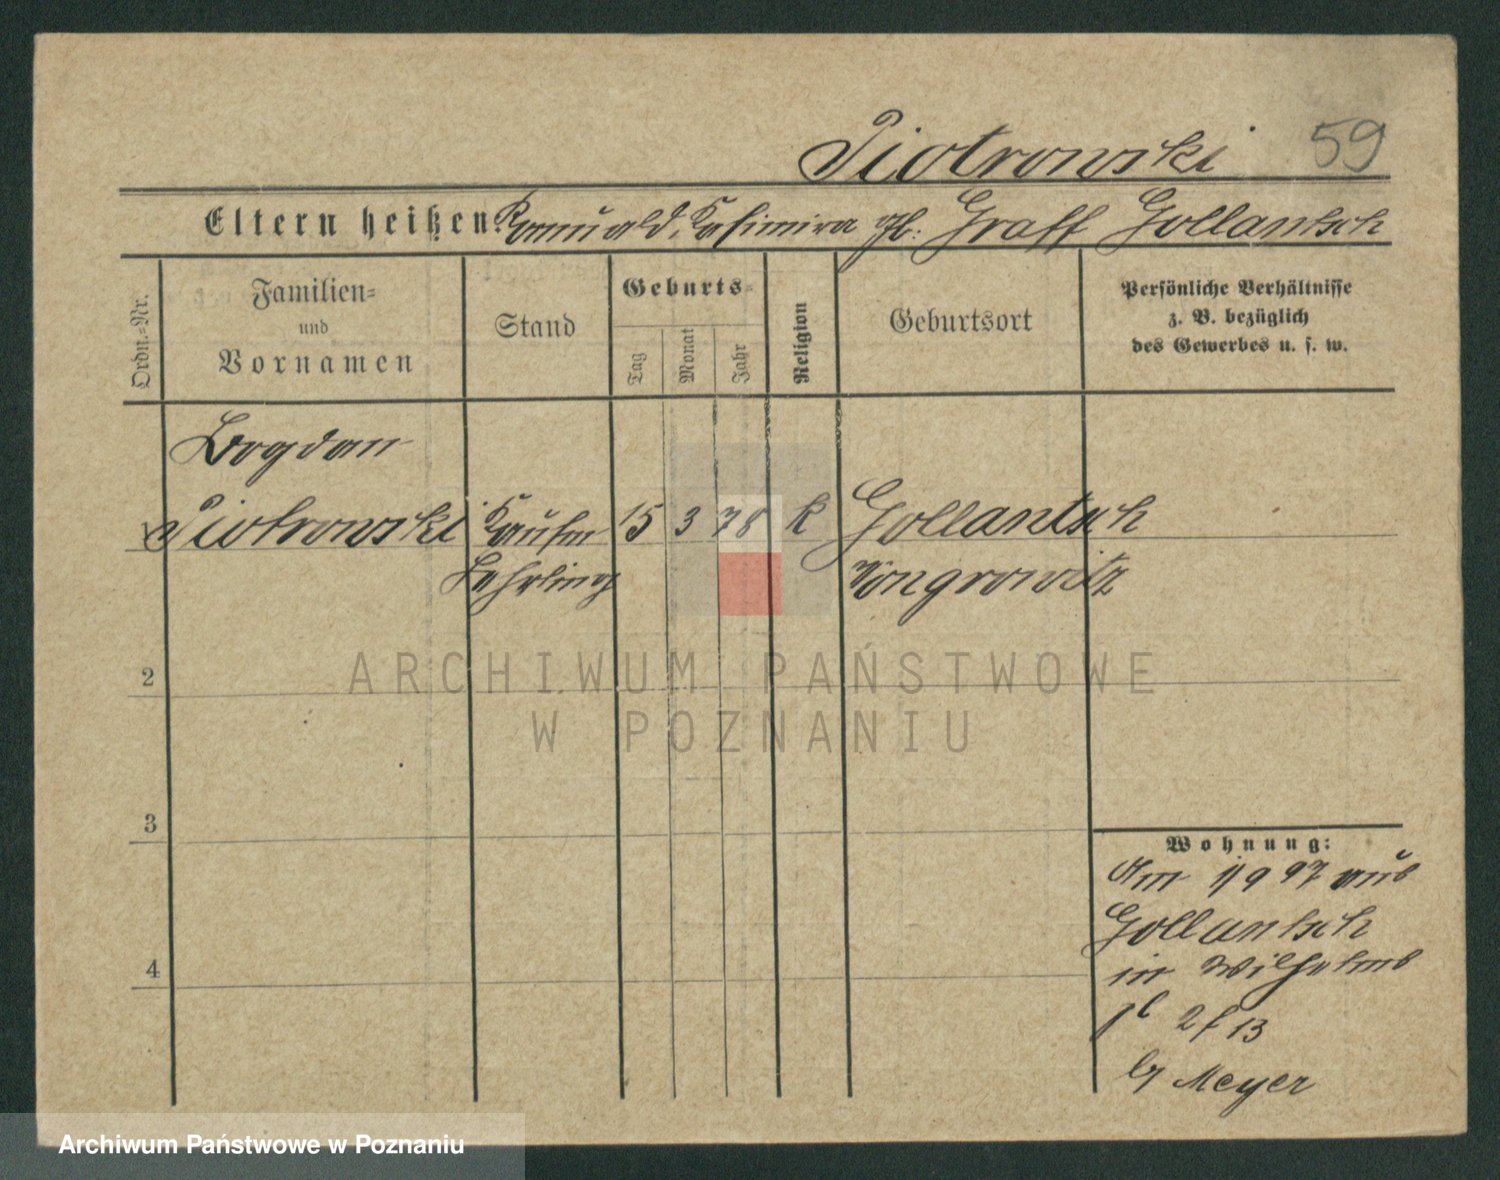 Piotrowski 59
Eltern heißen Romuald, Kasimira gb: Graff Gollantsch
Ordn.-Nr.
Familien-
und
Vornamen
Stand
Geburts-
Tag
Monat
Jahr
Religion
Geburtsort
Persönliche Verhältnisse
z. B. bezüglich
des Gewerbes u. s. w.
Bogdan
Piotrowski Kaufm 15 3 78 k Gollantsch
Lehrling Wongrowitz
2
ARCHIWUM PAŃSTWOWE
W POZNANIU
3
Wohnung:
Am 1/9 97 aus
Gollantsch
4
in Wilhelms
2 13
by Meyer
Archiwum Państwowe w Poznaniu